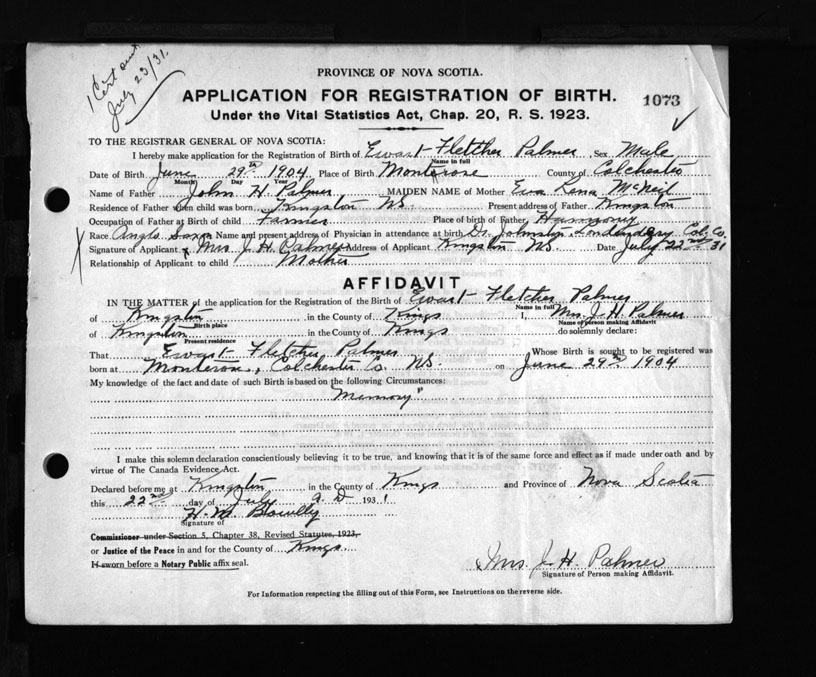 1 Cert out
July 23/31.
PROVINCE OF NOVA SCOTIA.
APPLICATION FOR REGISTRATION OF BIRTH.
1073
Under the Vital Statistics Act, Chap. 20, R. S. 1923.
TO THE REGISTRAR GENERAL OF NOVA SCOTIA:
I hereby make application for the Registration of Birth of Ewart Fletcher Palmer Sex Male
Name in full
Date of Birth June 29th 1904 Place of Birth Montrose County of Colchester
Month Day Year
Name of Father John H. Palmer MAIDEN NAME of Mother Eva Lena McNeil
Residence of Father when child was born Kingston NS. Present address of Father Kingston
Occupation of Father at Birth of child Farmer Place of birth of Father Harmony
Race Anglo Saxon Name and present address of Physician in attendance at birth Dr. Johnston, Londonderry Col. Co.
Signature of Applicant x Mrs. J. H. Palmer Address of Applicant Kingston NS. Date July 22nd 31
Relationship of Applicant to child Mother
AFFIDAVIT
IN THE MATTER of the application for the Registration of the Birth of Ewart Fletcher Palmer
Name in full
of Kingston in the County of Kings I, Mrs. J. H. Palmer
Birth place Name of person making Affidavit
of Kingston in the County of Kings do solemnly declare:
Present residence
That Ewart Fletcher Palmer Whose Birth is sought to be registered was
born at Montrose, Colchester Co. NS. on June 29th 1904
My knowledge of the fact and date of such Birth is based on the following Circumstances:
Memory
I make this solemn declaration conscientiously believing it to be true, and knowing that it is of the same force and effect as if made under oath and by
virtue of The Canada Evidence Act.
Declared before me at Kingston in the County of Kings and Province of Nova Scotia
this 22nd day of July A.D. 1931
H. M.
Signature of
Commissioner under Section 5, Chapter 38, Revised Statutes, 1923,
or Justice of the Peace in and for the County of Kings
If sworn before a Notary Public affix seal.
Mrs. J. H. Palmer
Signature of Person making Affidavit.
For Information respecting the filling out of this Form, see Instructions on the reverse side.